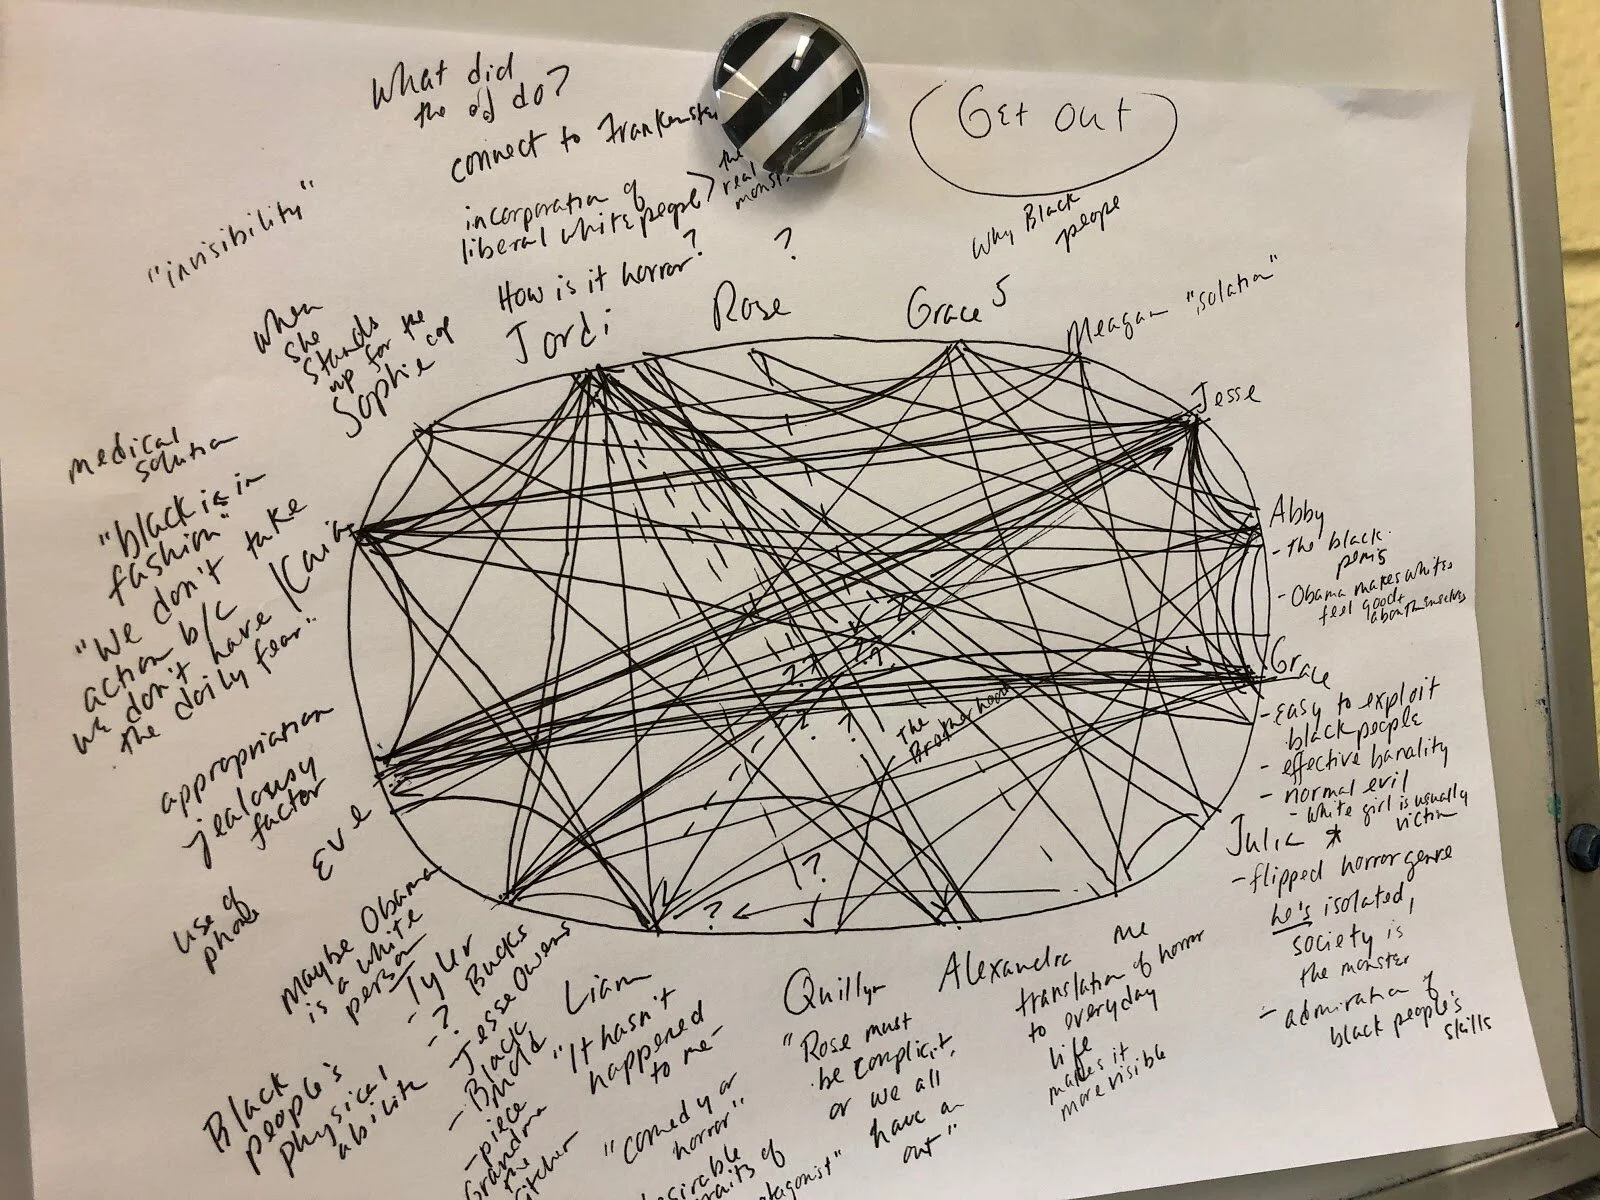 What did
the do?
connect to
the
real
incorporation of
liberal white people
How is it horror?
?
Get Out
Why Black
people
"invisibility"
when
she
stands
up for the
cop
Sophie
Jordi
Rose
Grace 5
Meagan
Jesse
medical
solution
"black is in
fashion"
"We don't take
action b/c
we don't have
the daily fear"
appropriation
jealousy
factor
Eve
use of
phone
Abby
- The black
penis
- Obama makes whites
feel good
about themselves
Grace
- easy to exploit
black people
- effective banality
- normal evil
- white girl is usually
victim
Julia *
- flipped horror genre
he's isolated,
society is
the monster
- admiration of
black people's
skills
The
Brotherhood
? ?
?
? ?
?
?
Maybe Obama
is a white
person
Black
people's
physical
ability
Tyler
- ? Bucks
- Jesse Owens
- Black
mold
- piece
Grandma
the
Liam
"It hasn't
happened
to me -
"comedy or
horror"
traits of
Quillyn
"Rose must
be complicit,
or we all
have an
out"
Alexandra
me
translation of horror
to everyday
life
makes it
more visible